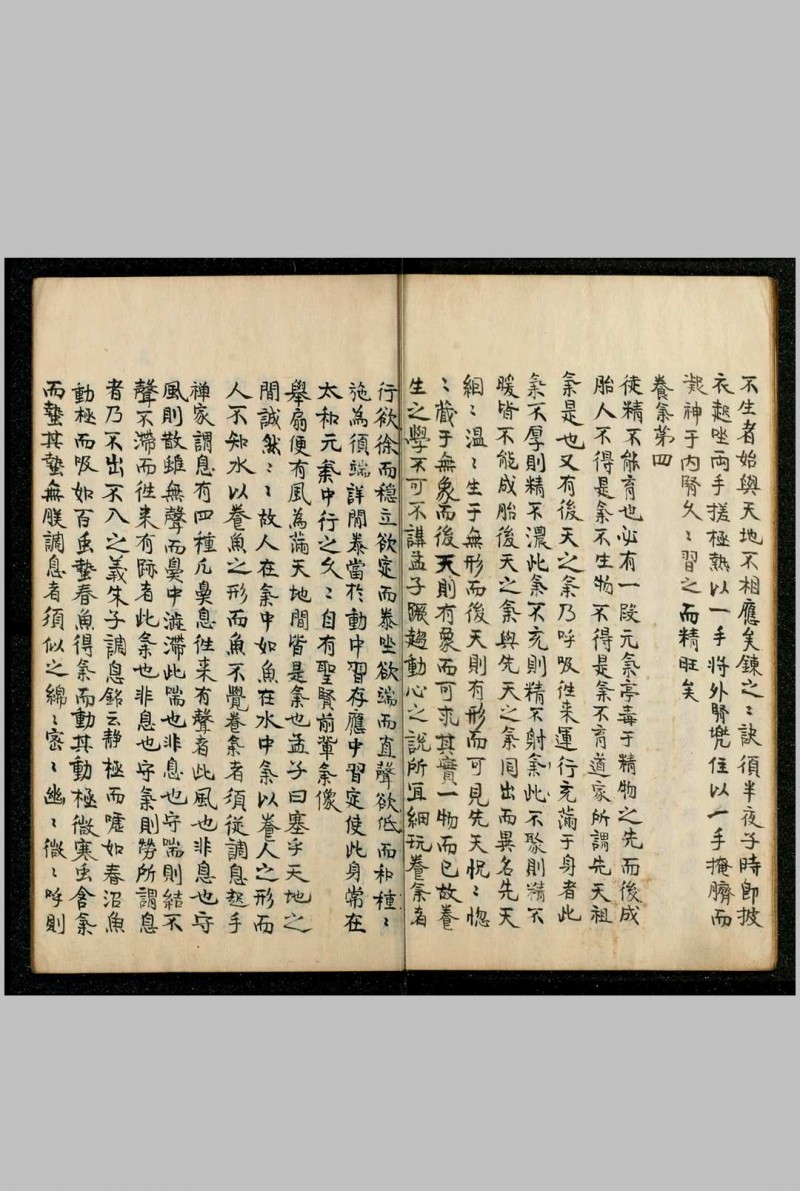 不生者始與天地不相應矣鍊之〻訣須半夜子時即披
衣起坐兩手搓極熱以一手將外腎兠住以一手掩臍而
凝神于內腎久〻習之而精旺矣
養氣第四
徒精不能育也必有一段元氣亭毒于精物之先而後成
胎人不得是氣不生物不得是氣不育道家所謂先天祖
氣是也又有後天之氣乃呼吸徃来運行充滿于身者此
氣不厚則精不濃此氣不充則精不射氣此不聚則精不
暖皆不能成胎後天之氣與先天之氣同出而異名先天
絪〻溫〻生于無形而後天則有形而可見先天恍〻惚
〻蔵于無象而後天則有象而可求其實一物而已故養
生之學不可不講孟子蹶趨動心之說所宜細玩養氣者
行欲徐而穩立欲定而恭坐欲端而直聲欲低而和種〻
施為須端詳閒泰當於動中習存應中習定使此身常在
太和元氣中行之久〻自有聖賢前輩氣像
舉扇便有風為滿天地間皆是氣也孟子曰塞乎天地之
間誠然〻〻故人在氣中如魚在水中氣以養人之形而
人不知水以養魚之形而魚不覺養氣者須従調息起手
禅家調息有四種凢鼻息徃来有聲者此風也非息也守
風則散雖無聲而鼻中澁滯此喘也非息也守喘則結不
聲不滯而徃来有跡者此氣也非息也守氣則勞所謂息
者乃不出不入之義朱子調息銘云静極而嘘如春沼魚
動極而吸如百虫蟄春魚得氣而動其動極微寒虫含氣
而蟄其蟄無朕調息者須似之綿〻密〻幽〻微〻呼則